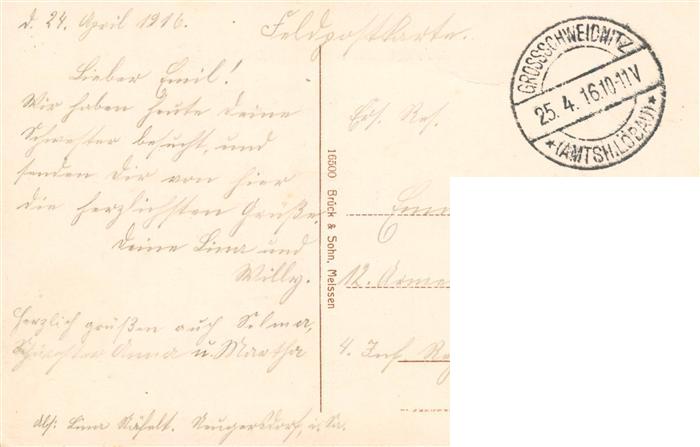 d. 24. April 1916.
Feldpostkarte.
Lieber Emil!
Wir haben heute Deine
Schwester besucht, und
senden Dir von hier
die herzlichsten Grüße.
Deine Lina und
Willy.
Herzlich grüßen auch Selma,
Schwester Anna u. Martha
Abs: Lina Neugersdorf, i. Sa.
16500 Brück & Sohn, Meissen
GROSSSCHWEIDNITZ
25. 4. 16. 10-11V
*(AMTSH. LÖBAU)*
Ers. Res.
12. Arme
4. Inf. Re